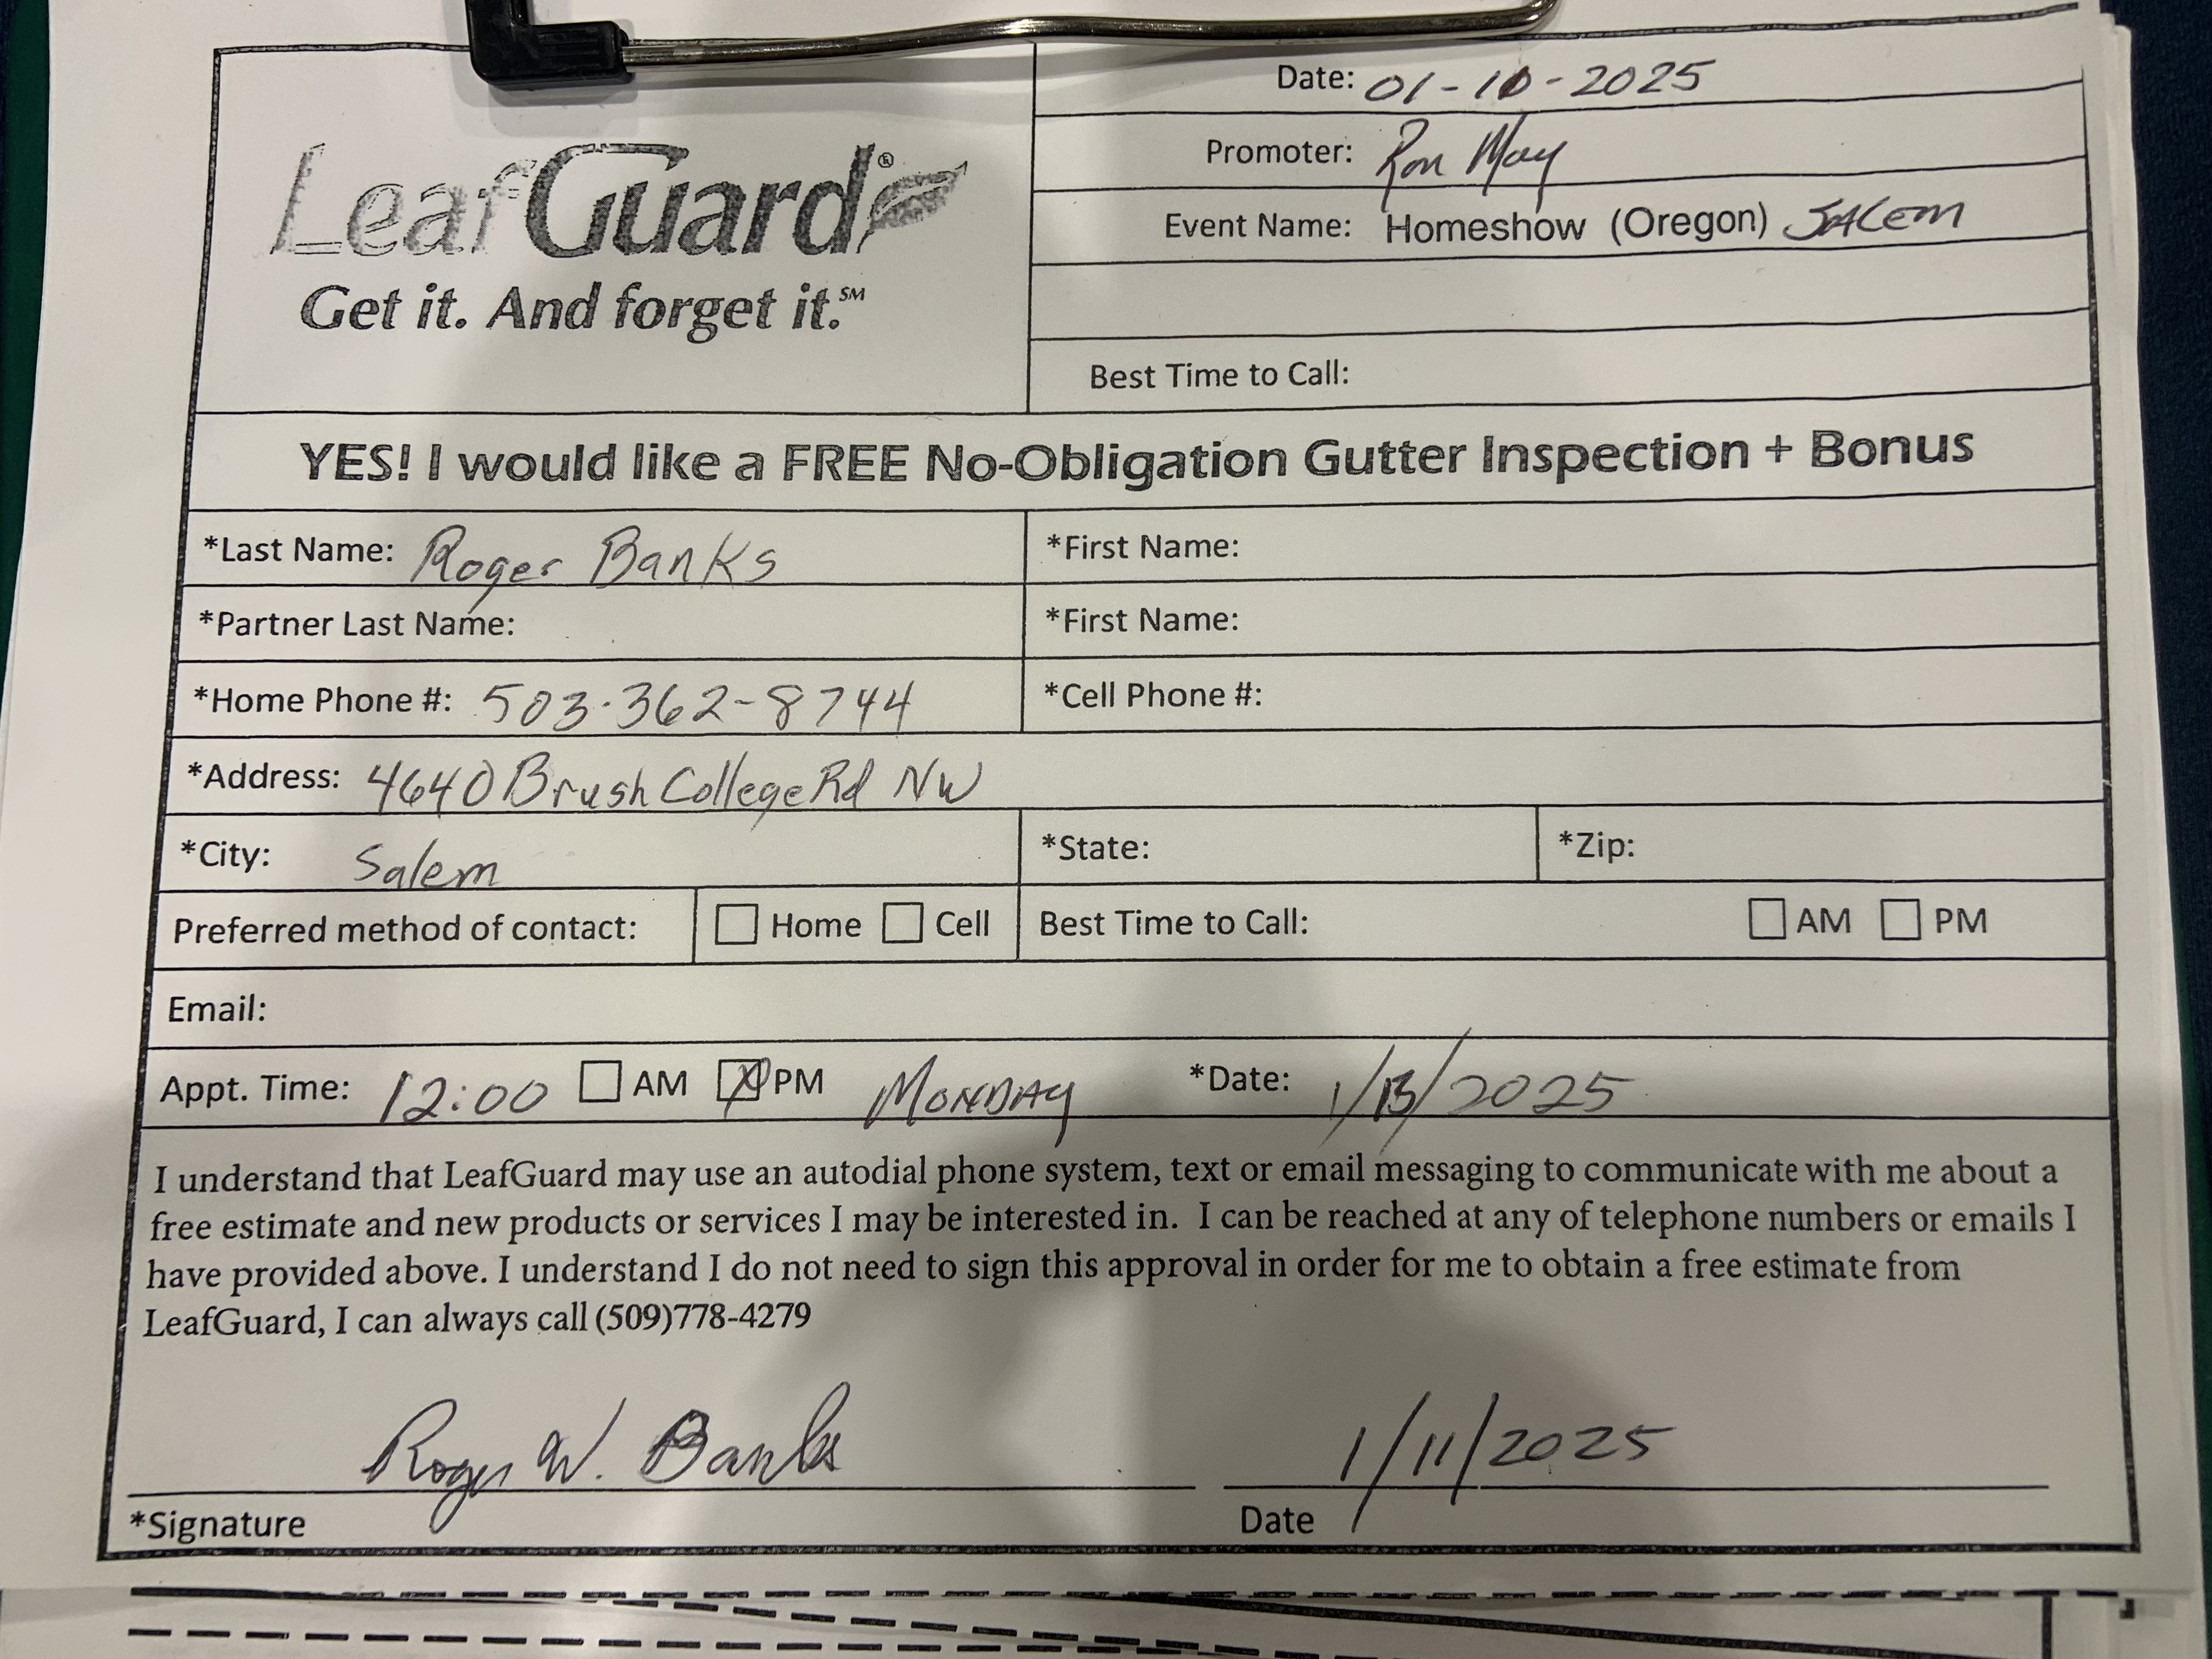 LeafGuard®
Get it. And forget it.℠
Date: 01-10-2025
Promoter: Ron May
Event Name: Homeshow (Oregon) Salem
Best Time to Call:
YES! I would like a FREE No-Obligation Gutter Inspection + Bonus
*Last Name: Roger Banks *First Name:
*Partner Last Name: *First Name:
*Home Phone #: 503.362-8744 *Cell Phone #:
*Address: 4640 Brush College Rd NW
*City: Salem *State: *Zip:
Preferred method of contact: ☐ Home ☐ Cell Best Time to Call: ☐ AM ☐ PM
Email:
Appt. Time: 12:00 ☐ AM ☒ PM Monday *Date: 1/13/2025
I understand that LeafGuard may use an autodial phone system, text or email messaging to communicate with me about a
free estimate and new products or services I may be interested in. I can be reached at any of telephone numbers or emails I
have provided above. I understand I do not need to sign this approval in order for me to obtain a free estimate from
LeafGuard, I can always call (509)778-4279
Roger W. Banks 1/11/2025
*Signature Date